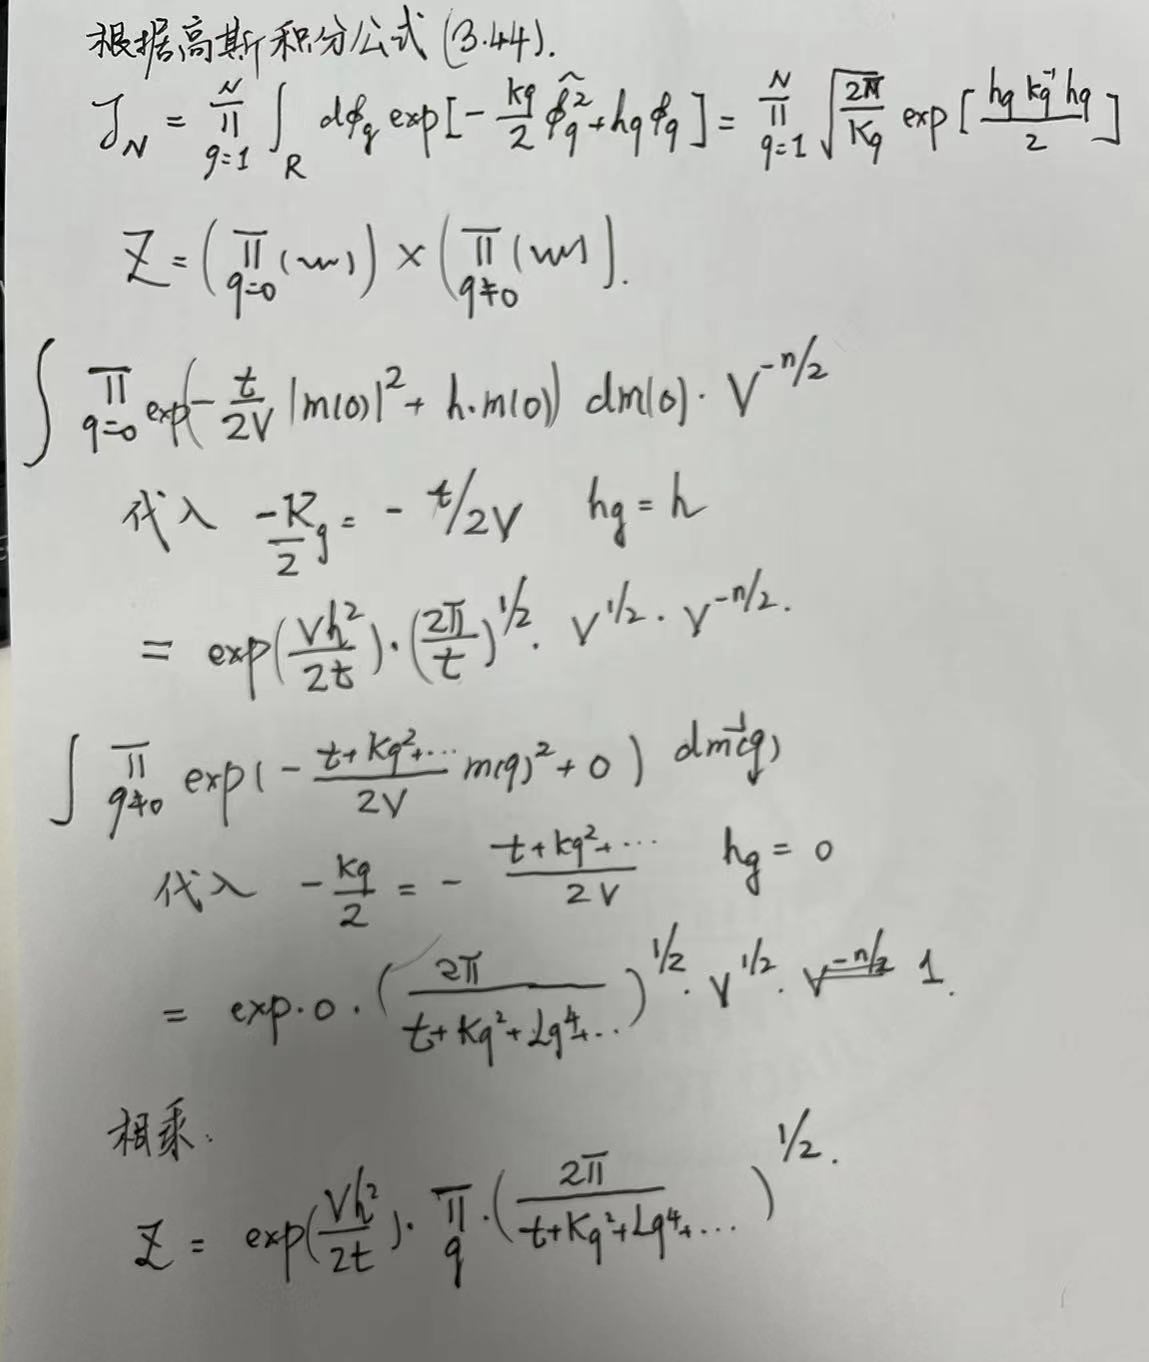 根据高斯积分公式 (3.44).
J_N = \prod_{q=1}^{N} \int_R dϕ_q exp[-\frac{Kq}{2} \hat{ϕ}_q^2 + hq ϕ_q] = \prod_{q=1}^{N} \sqrt{\frac{2π}{Kq}} exp[\frac{hq kq^{-1} hq}{2}]
Z = (\prod_{q=0} (~~~)) × (\prod_{q≠0} (~~~)).
∫ \prod_{q=0} exp(-\frac{t}{2V} |m(0)|^2 + h·m(0)) dm(0) · V^{-n/2}
代入 \frac{-K}{2}_q = - t/2V hq = h
= exp(\frac{Vh^2}{2t})·(\frac{2π}{t})^{1/2}. V^{1/2} · V^{-n/2}.
∫ \prod_{q≠0} exp(-\frac{t+Kq^2+...}{2V} m(q)^2 + 0) dm(q)
代入 -\frac{kq}{2} = - \frac{t+kq^2+...}{2V} hq = 0
= exp·0·(\frac{2π}{t+Kq^2+Lq^4+..})^{1/2}. V^{1/2}. V^{-n/2} 1.
相乘:
Z = exp(\frac{Vh^2}{2t})· \prod_q ·(\frac{2π}{t+Kq^2+Lq^4+...})^{1/2}.